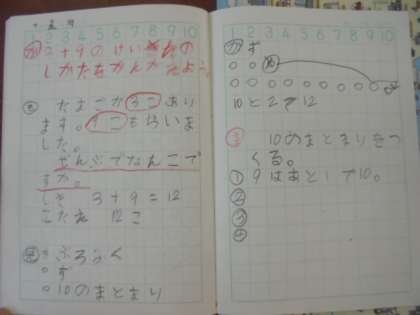 1 2 3 4 5 6 7 8 9 10
か 3+9のけいさんの
しかたをかんがえよう。
も たまごが3こあり
ます。9こもらいま
した。
ぜんぶでなんこで
すか。
しき 3+9=12
こたえ 12こ
ぶろっく
ず
10のまとまり
1 2 3 4 5 6 7 8 9 10
かず
10と2で12
ま 10のまとまりをつ
くる。
① 9はあと1で10。
②
③
④